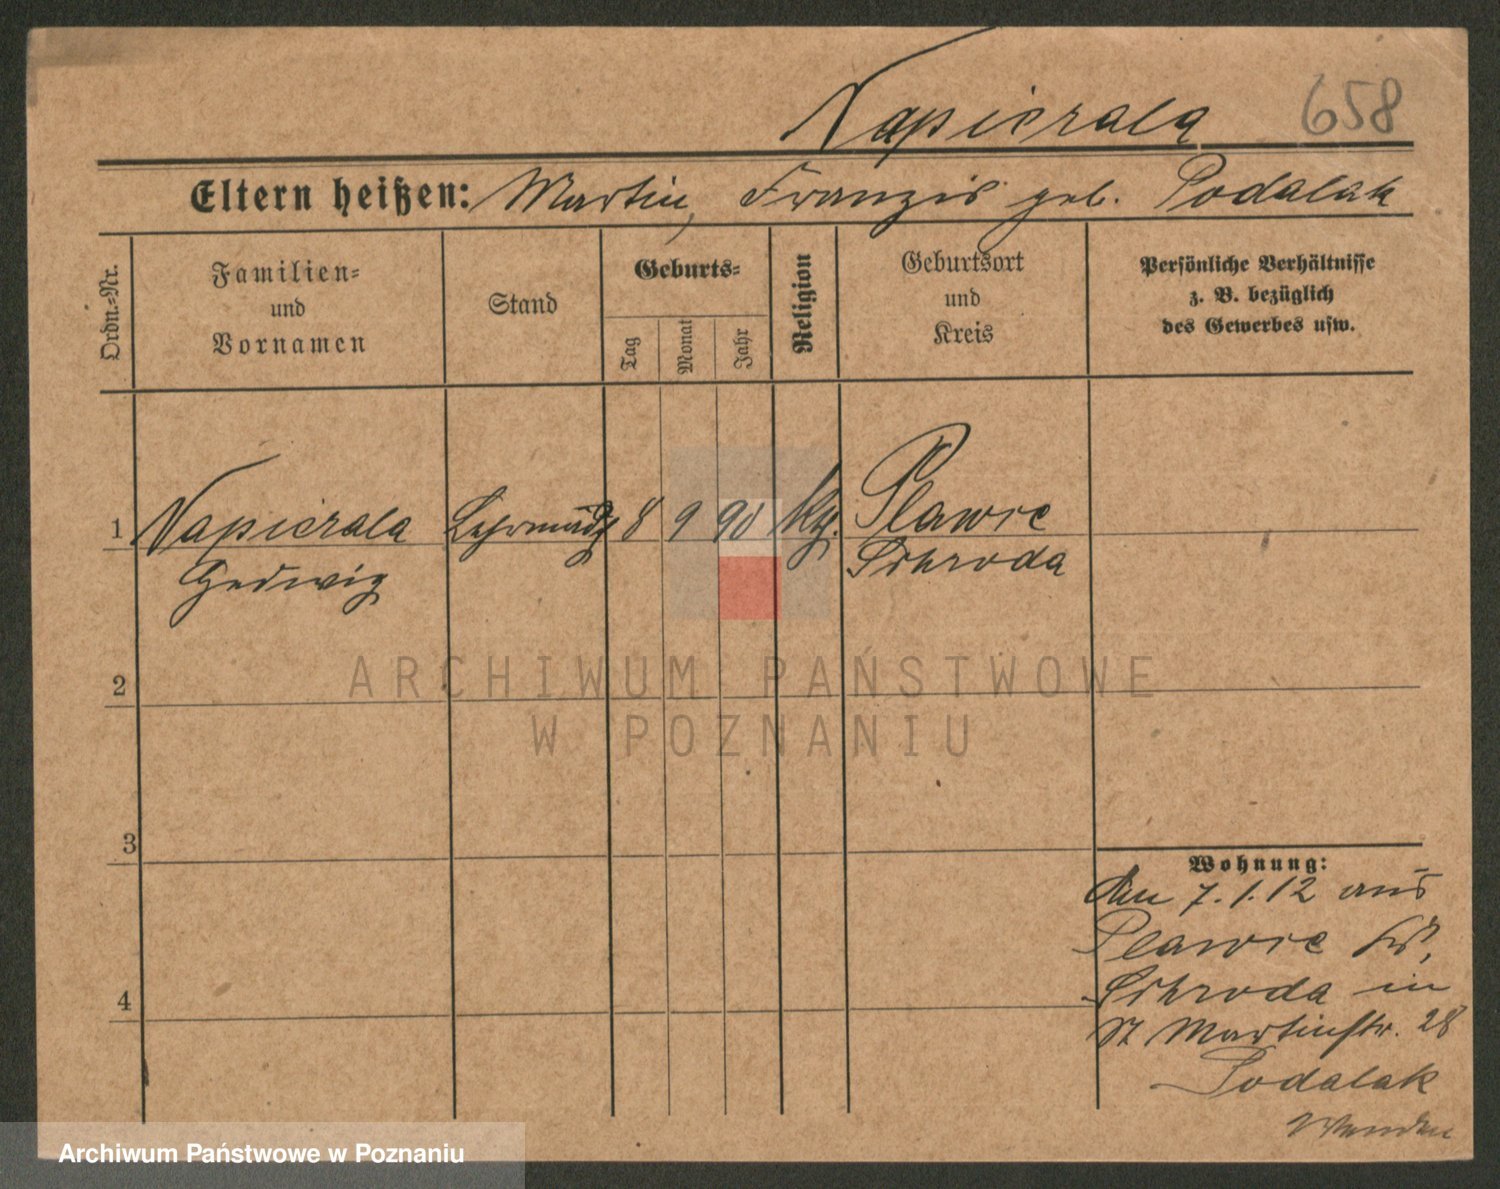 Napierala 658
Eltern heißen: Martin, Franzis geb. Podalak
Ordn.=Nr.
Familien=
und
Vornamen
Stand
Geburts=
Tag
Monat
Jahr
Religion
Geburtsort
und
Kreis
Persönliche Verhältnisse
z. B. bezüglich
des Gewerbes usw.
1 Napierala Lehrmädch 8 9 90 kth. Plawce
Hedwig Schroda
2
ARCHIWUM PAŃSTWOWE
W POZNANIU
3
4
Wohnung:
Am 7.1.12 aus
Plawce Krs.
Schroda in
St Martinstr. 28
Podalak
Wenden
Archiwum Państwowe w Poznaniu